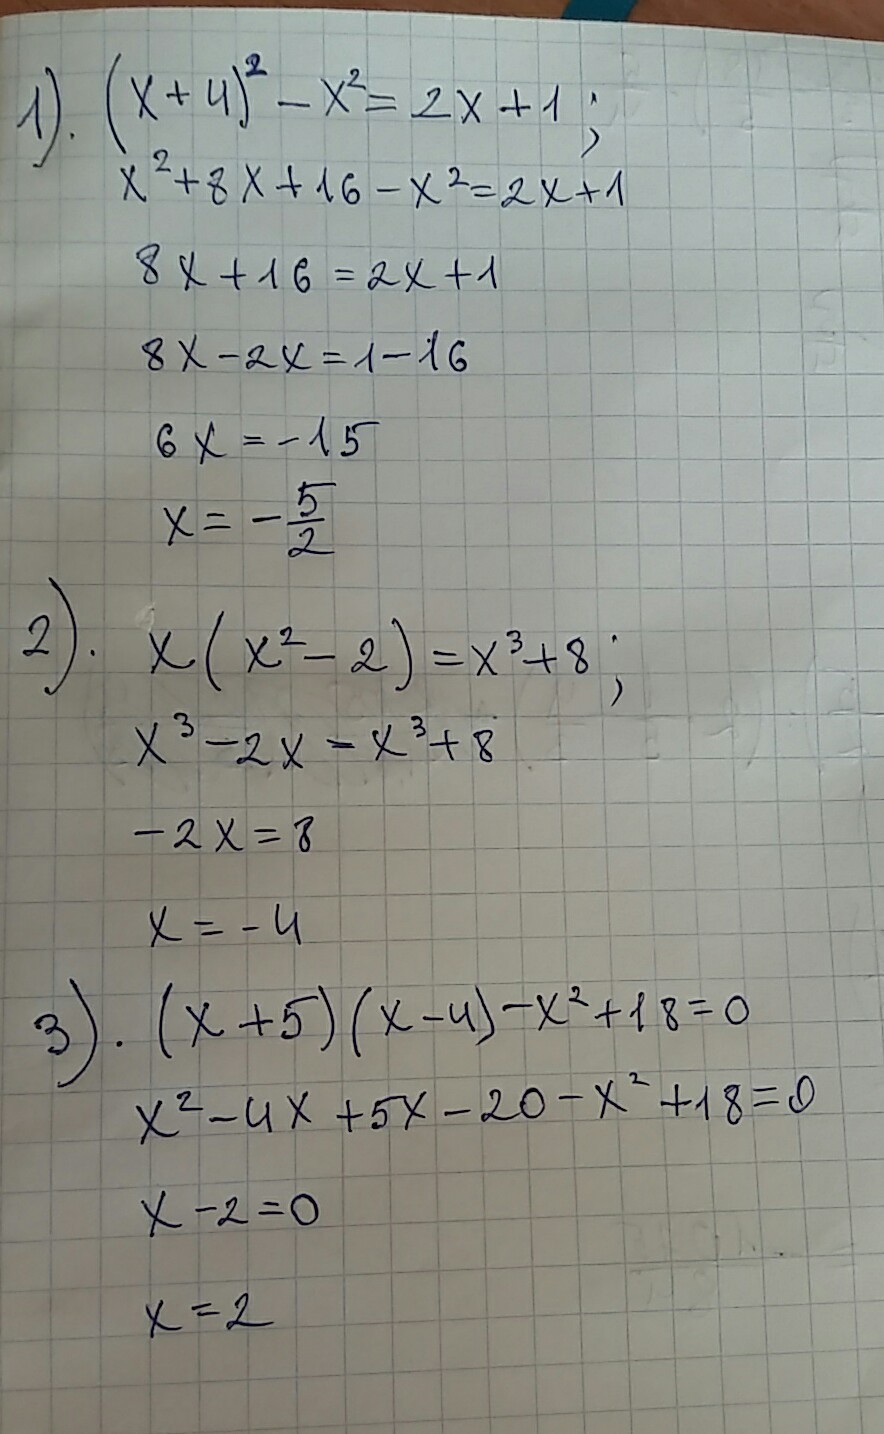 1). (x+4)² - x² = 2x + 1 ;
x² + 8x + 16 - x² = 2x + 1
8x + 16 = 2x + 1
8x - 2x = 1 - 16
6x = -15
x = - 5/2
2). x(x² - 2) = x³ + 8 ;
x³ - 2x - x³ + 8
-2x = 8
x = -4
3). (x + 5)(x - 4) - x² + 18 = 0
x² - 4x + 5x - 20 - x² + 18 = 0
x - 2 = 0
x = 2